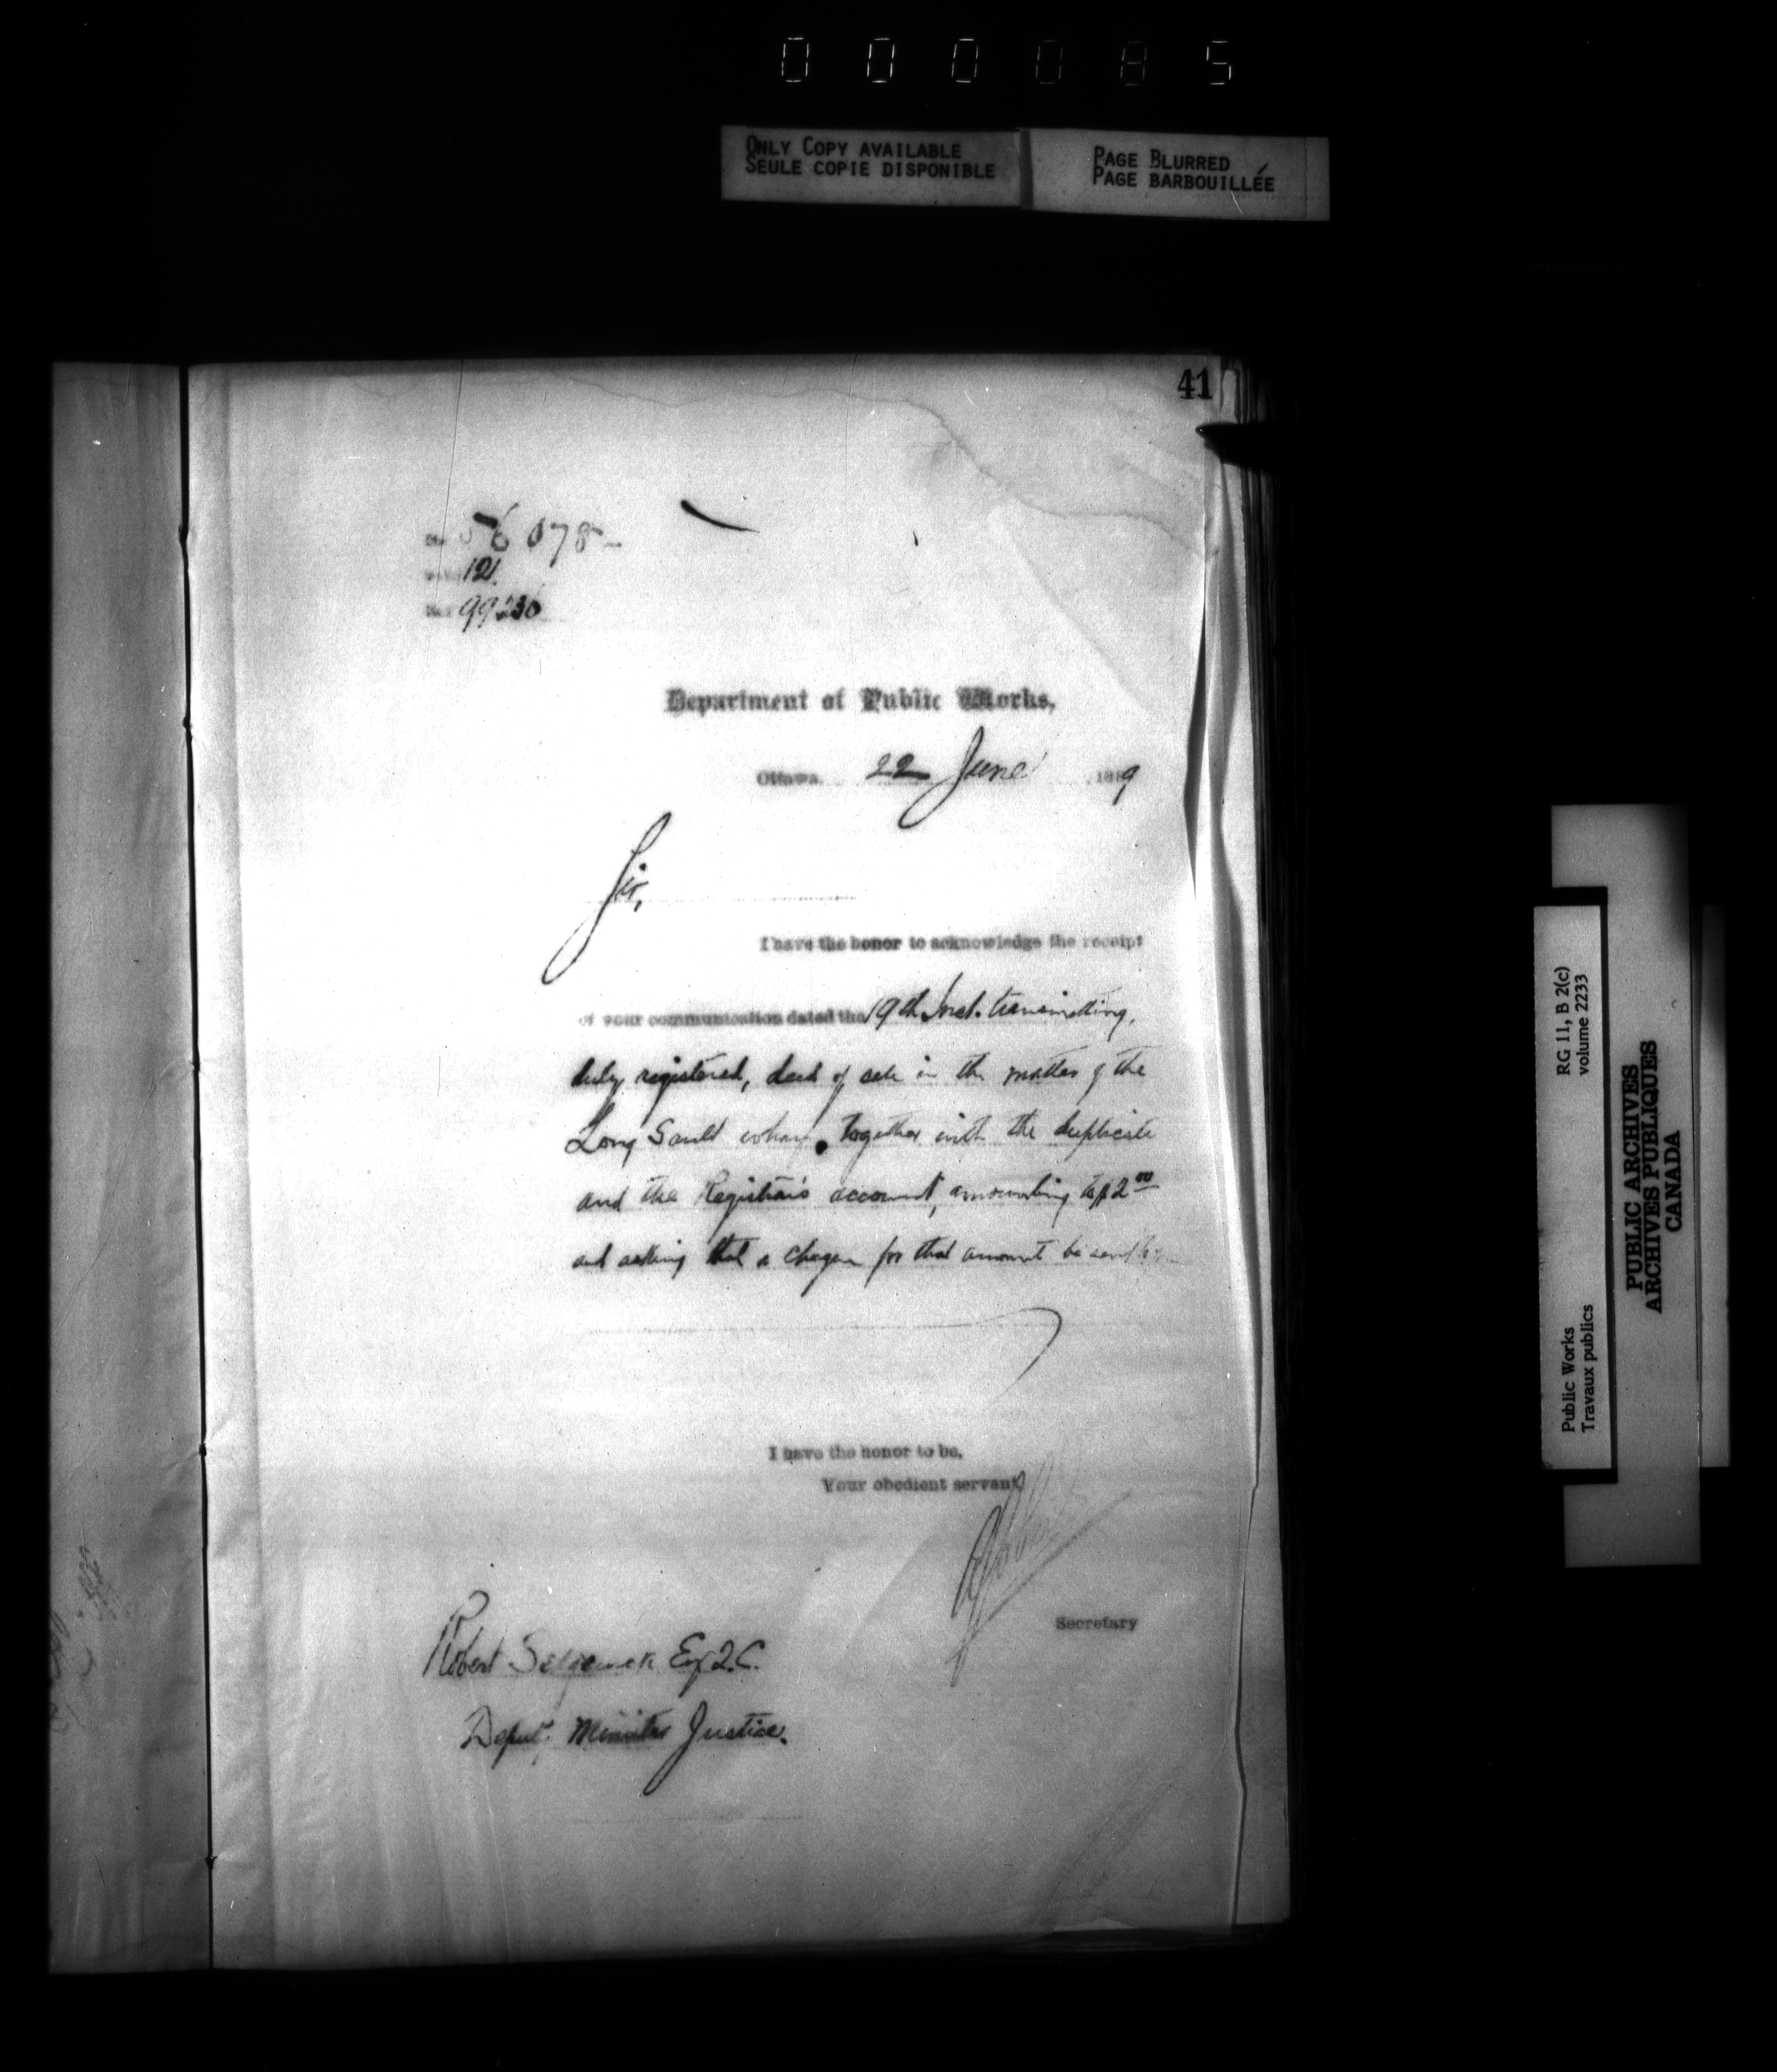 000085
ONLY COPY AVAILABLE
SEULE COPIE DISPONIBLE
PAGE BLURRED
PAGE BARBOUILLÉE
41
56078
121
99236
Department of Public Works,
Ottawa. 22 June 1889
Sir,
I have the honor to acknowledge the receipt
of your communication dated the 19th Inst. transmitting,
duly registered, deed of sale in the matter of the
Long Sault wharf, together with the duplicate
and the Registrar's account, amounting to $2.00
and asking that a cheque for that amount be sent
I have the honor to be,
Your obedient servant
Secretary
Robert Sedgewick Esq Q.C.
Deputy Minister Justice.
RG 11, B 2(c)
volume 2233
Public Works
Travaux publics
PUBLIC ARCHIVES
ARCHIVES PUBLIQUES
CANADA